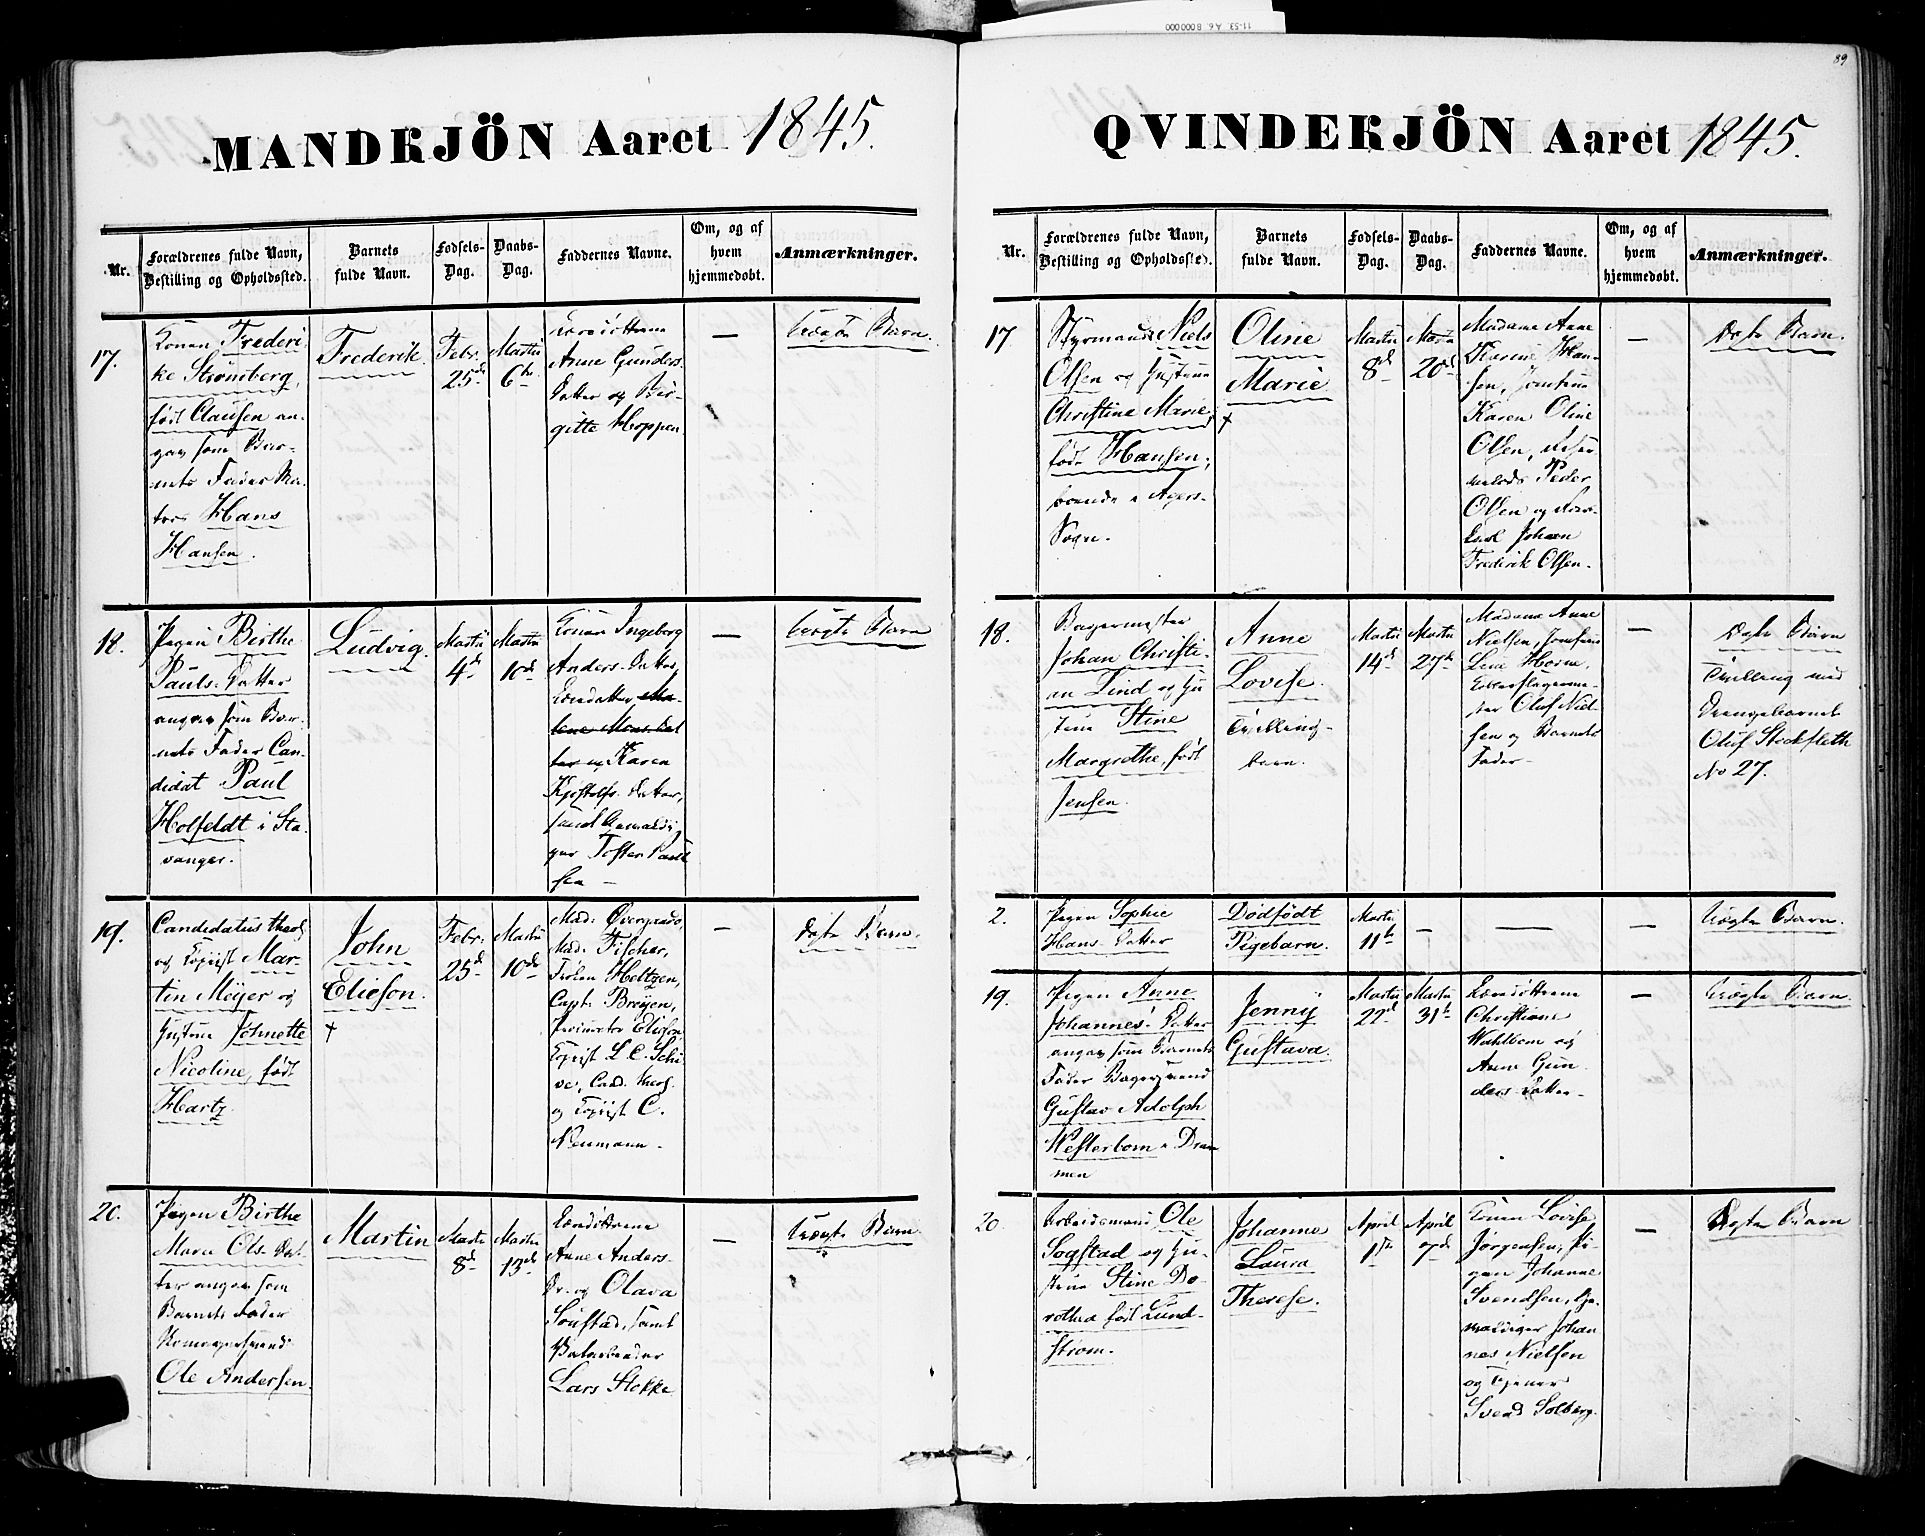 11-53. A6. B000000
89
MANDKJÖN Aaret 1845.
Nr.
Forældrenes fulde Navn,
Bestilling og Opholdssted.
Barnets
fulde Navn.
Fødsels-
Dag.
Daabs-
Dag.
Faddernes Navne.
Om, og af
hvem
hjemmedøbt.
Anmærkninger.
17.
Konen Frederi-
ke Strömberg,
født Clausen an-
gav som Bar-
nets Fader
Hans
Hansen.
Frederik
Febr.
25de
Martii
6te
Anne Gunders
Datter og Bir-
gitte Hoppen
—
Uægte Barn.
18.
Pigen Birthe
Pauls Datter
angav som Bar-
nets Fader Can-
didat Paul
Holfeldt i Sta-
vanger.
Ludvig.
Martii
4de
Martii
10de
Konen Ingeborg
Anders Datter,
Karen
Datter,
samt
Tosten Paul
sen —
—
Uægte Barn
19.
Candidatus theol.
og Copiist Mar-
tin Meijer og
Hustrue Johnette
Nicoline, født
Hartz.
John
Elieson.
+
Febr.
25de
Martii
10de
Mad. Overgaard,
Mad. Fischer,
Frøken Heltzen,
Capt. Breyen,
Procurator Elieson
Copiist L. C. Schi-
ve, Cand. theol.
og Copiist C.
Neumann.
—
Ægte Barn.
20.
Pigen Birthe
Maria Ols Dat-
ter angav som
Barnets Fader
Ole Andersen.
Martin
Martii
8de
Martii
13de
Anne Anders-
Dr. og Olava
samt
Lars Stokke
—
Uægte Barn
QVINDEKJÖN Aaret 1845.
Nr.
Forældrenes fulde Navn,
Bestilling og Opholdssted.
Barnets
fulde Navn.
Fødsels-
Dag.
Daabs-
Dag.
Faddernes Navne.
Om, og af
hvem
hjemmedøbt.
Anmærkninger.
17.
Styrmand Niels
Olsen og Hustrue
Christine Marie,
født Hansen,
boende i Agers-
Sogn.
Oline
Marie
+
Martii
8de
Martii
20de
Madame Anne
Karine Han-
sen, Jomfrue
Karen Oline
Olsen,
Peder
Olsen og
Johan
Frederik Olsen.
—
Ægte Barn.
18.
Bagermester
Johan Christi-
an Lind og Hu-
strue Stine
Margrethe, født
Jensen.
Anne
Lovise.
Tvilling-
barn.
Martii
14de
Martii
27de
Madame Anne
Nielsen, Jomfrue
Lene Horn,
Oluf Niel-
sen og Barnets
Fader.
—
Ægte Barn
Tvilling med
Drengebarnet
Oluf Stockfleth
No 27.
2.
Pigen Sophie
Hans Datter
Dödfödt
Pigebarn.
Martii
11te
—
—
—
Uægte Barn.
19.
Pigen Anne
Johannes Datter
angav som Barnets
Fader Bagersvend
Gustav Adolph
Westerbom i Dram
men
Jenny
Gustava.
Martii
22de
Martii
31te
Christiane
Wahlbom og
Anne Gun
ders Datter.
—
Uægte Barn.
20.
Arbeidsmand Ole
Sogstad og Hu-
strue Stine Do-
rothea født Lund-
strøm.
Johanne
Laura
Therese.
April
1ste
April
7de
Konen Lovise
Jörgensen, Pi-
gen Johanne
Svendsen,
Johan
nes Nielsen
og Tjener
Svend Solberg.
—
Ægte Barn